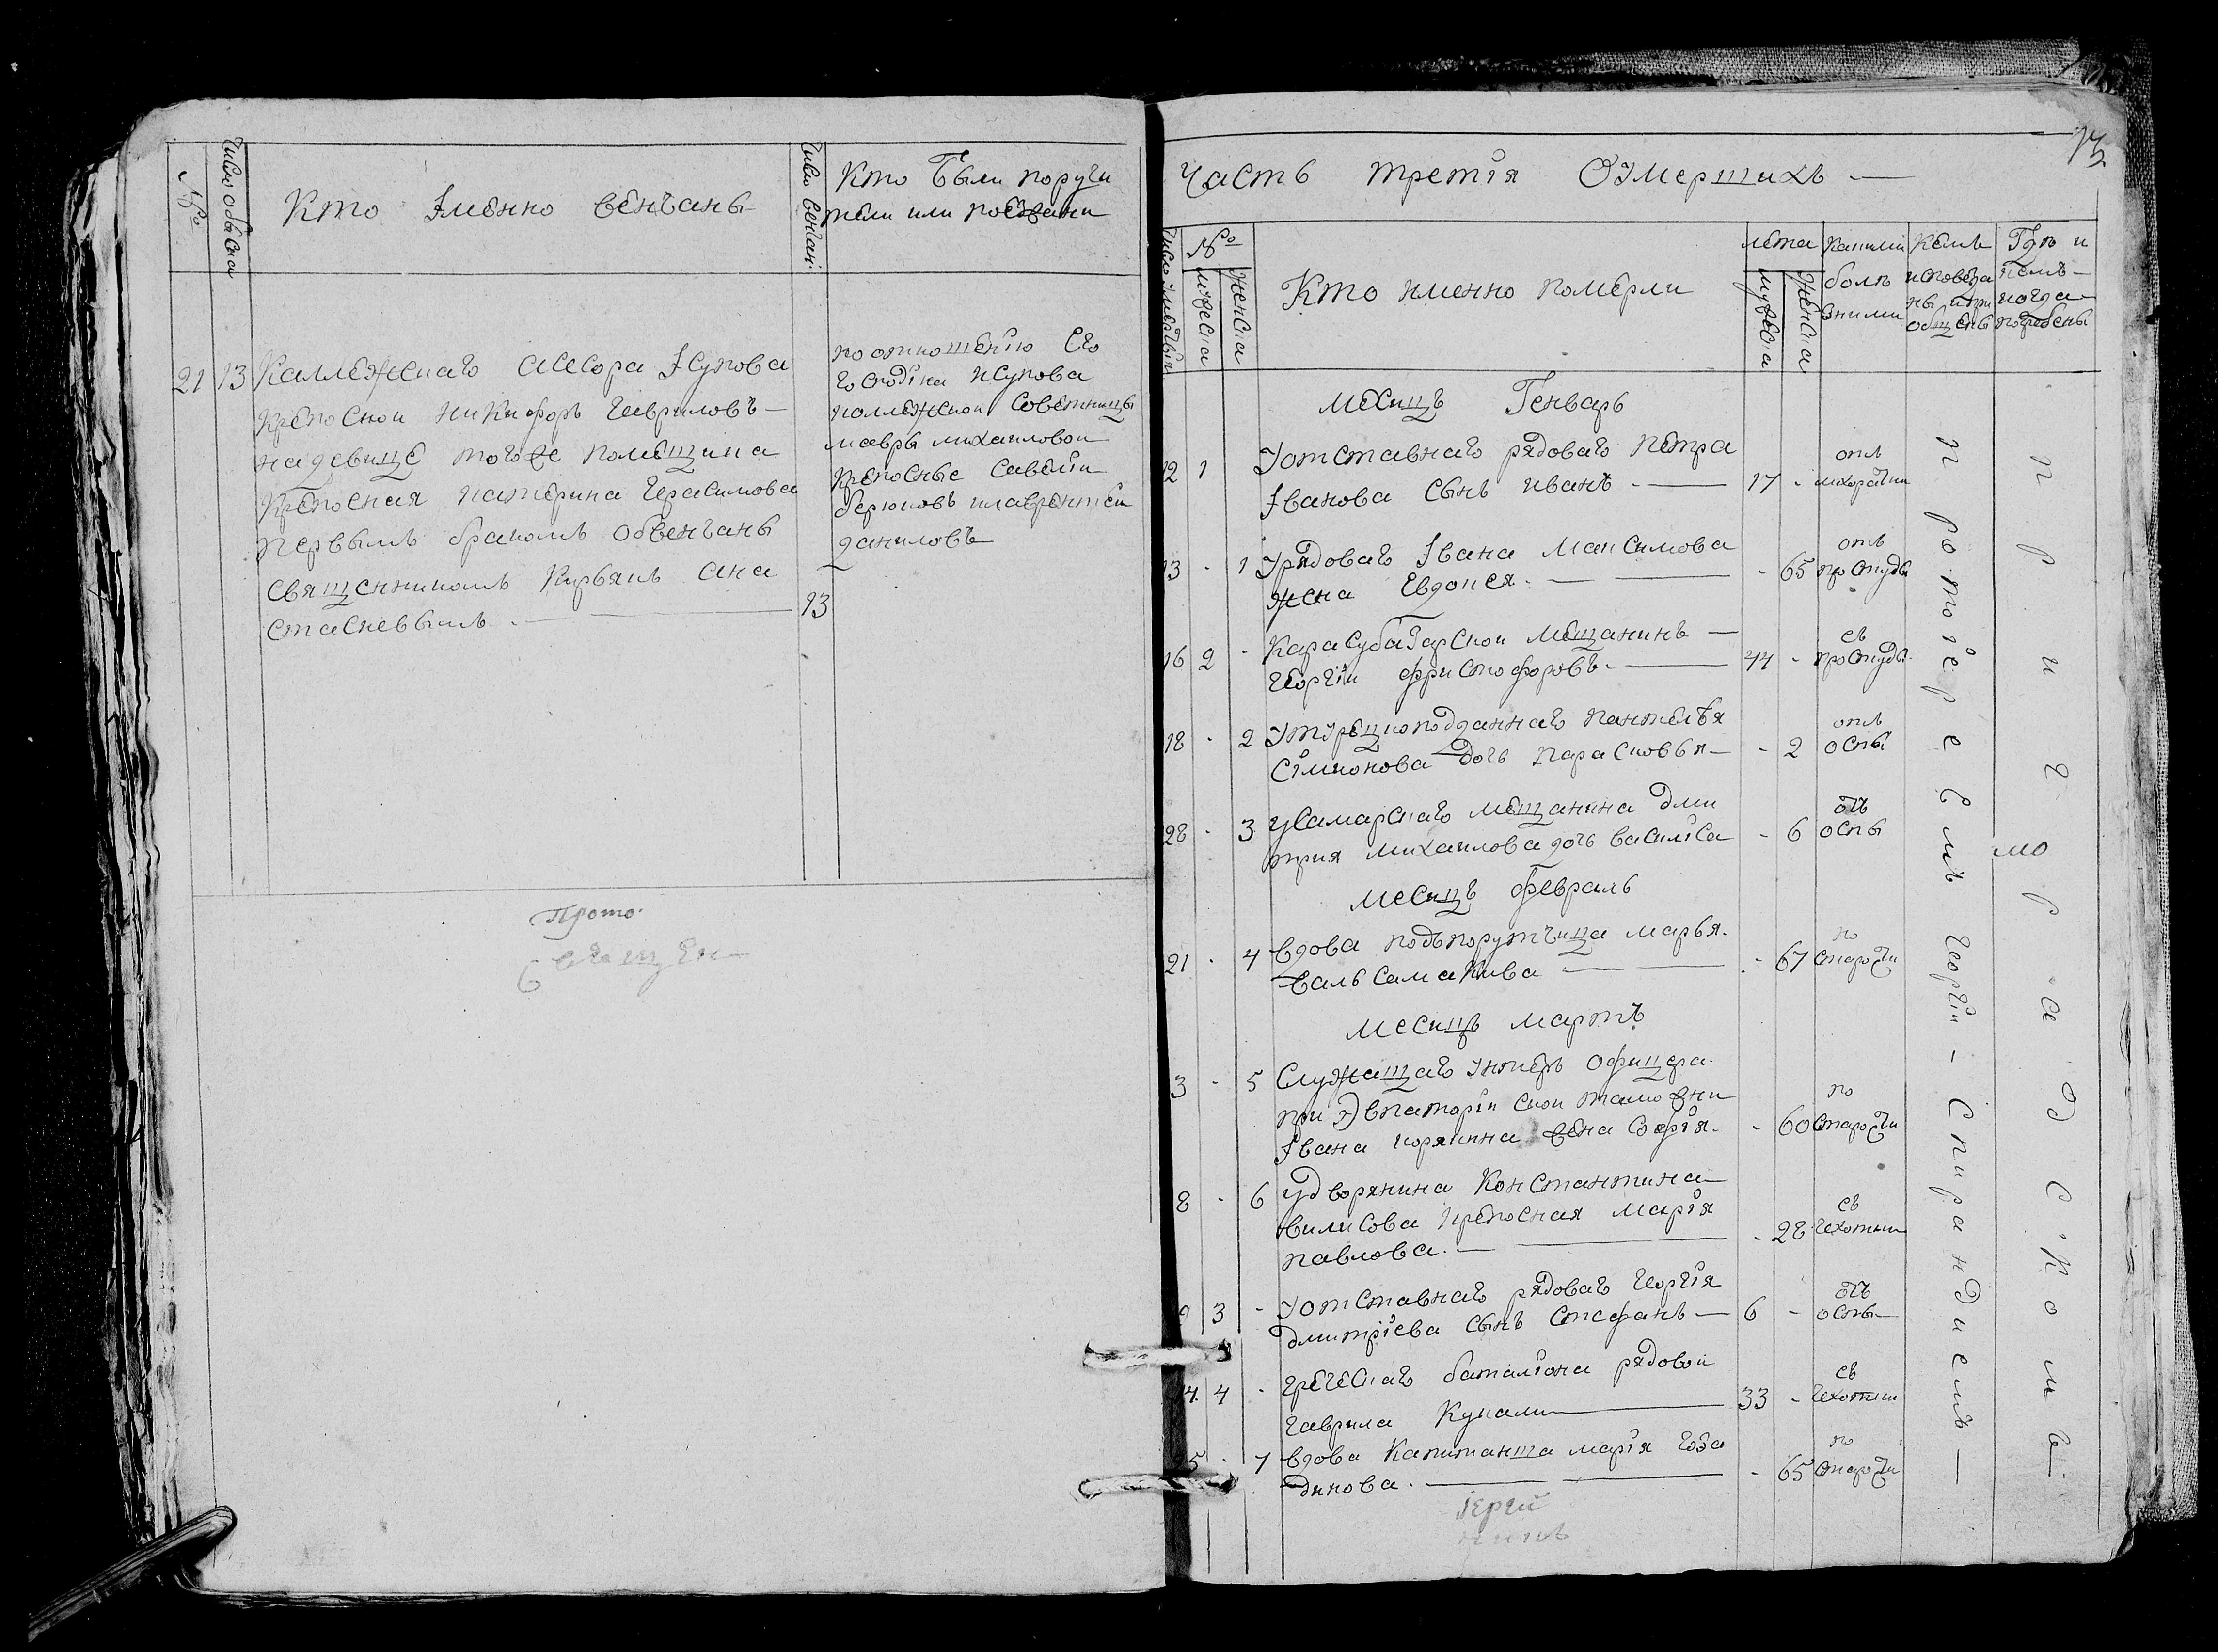 №
число обыска
Кто Іменно венчаны
число венчан:
Кто Были поручи
тели или поезжани
21 13 Каллежскаго асесора Ісупова
крепоснои Никифоръ Гавриловъ —
на девице тогоже помещика
крепосная катерина Герасимова
первымъ бракомъ обвенчаны
священникомъ Кирьякъ ана
стасиевымъ . — 13
по отношенію Его
Господіна исупова
коллежскои Советницы
мавры михаиловои
крепосные Савелій
данилавъ
Прото
священ
Часть третія Оумершихъ —
число умершых
№
мужеска
женска
Кто именно померли
лета
мужеска
женска
какими
болѣ
зними
Кемъ
исповеда
ны и при
общены
Гдѣ и
кемъ
когда
погребены
месицъ Генварь
12 1 Уотставнаго рядоваго Петра
Іванова Сынъ иванъ . — 17 - отъ лихоратки
13 - 1 Урядоваго Івана Максимова
жена Евдокея . — - 65 отъ простуды
16 2 - Карасубазарскои мещанинъ —
Георгіи Фристофоровъ . — 44 - съ простуды
18 - 2 Утурецкоподданнаго пантелѣя
Сімионова дочь парасковья — - 2 отъ оспы
28 - 3 уСамарскаго мещанина дми
трия михаилова дочь василіса - 6 отъ оспы
месицъ февраль
21 - 4 вдова подпорутчица марья
— - 67 по старости
месицъ мартъ
3 - 5 Служащаго унтеръ офицера
при Эвпаторіи скои таможни
Івана корякина жена Софія . - 60 по старости
8 - 6 удворянина Константина
вилисова крепосная марія
павлова . — - 28 съ чехотки
9 3 - Уотставнаго рядоваго Георгія
дмитріева сынъ Стефанъ — 6 - отъ оспы
14 4 - греческаго баталіона рядовои
гаврила Кукали — 33 - съ чехотки
25 - 7 вдова Капитанша марія
динова . — - 65 по старости
протоіереемъ Георгіи - Спирандиемъ —
при городскомъ
іереи